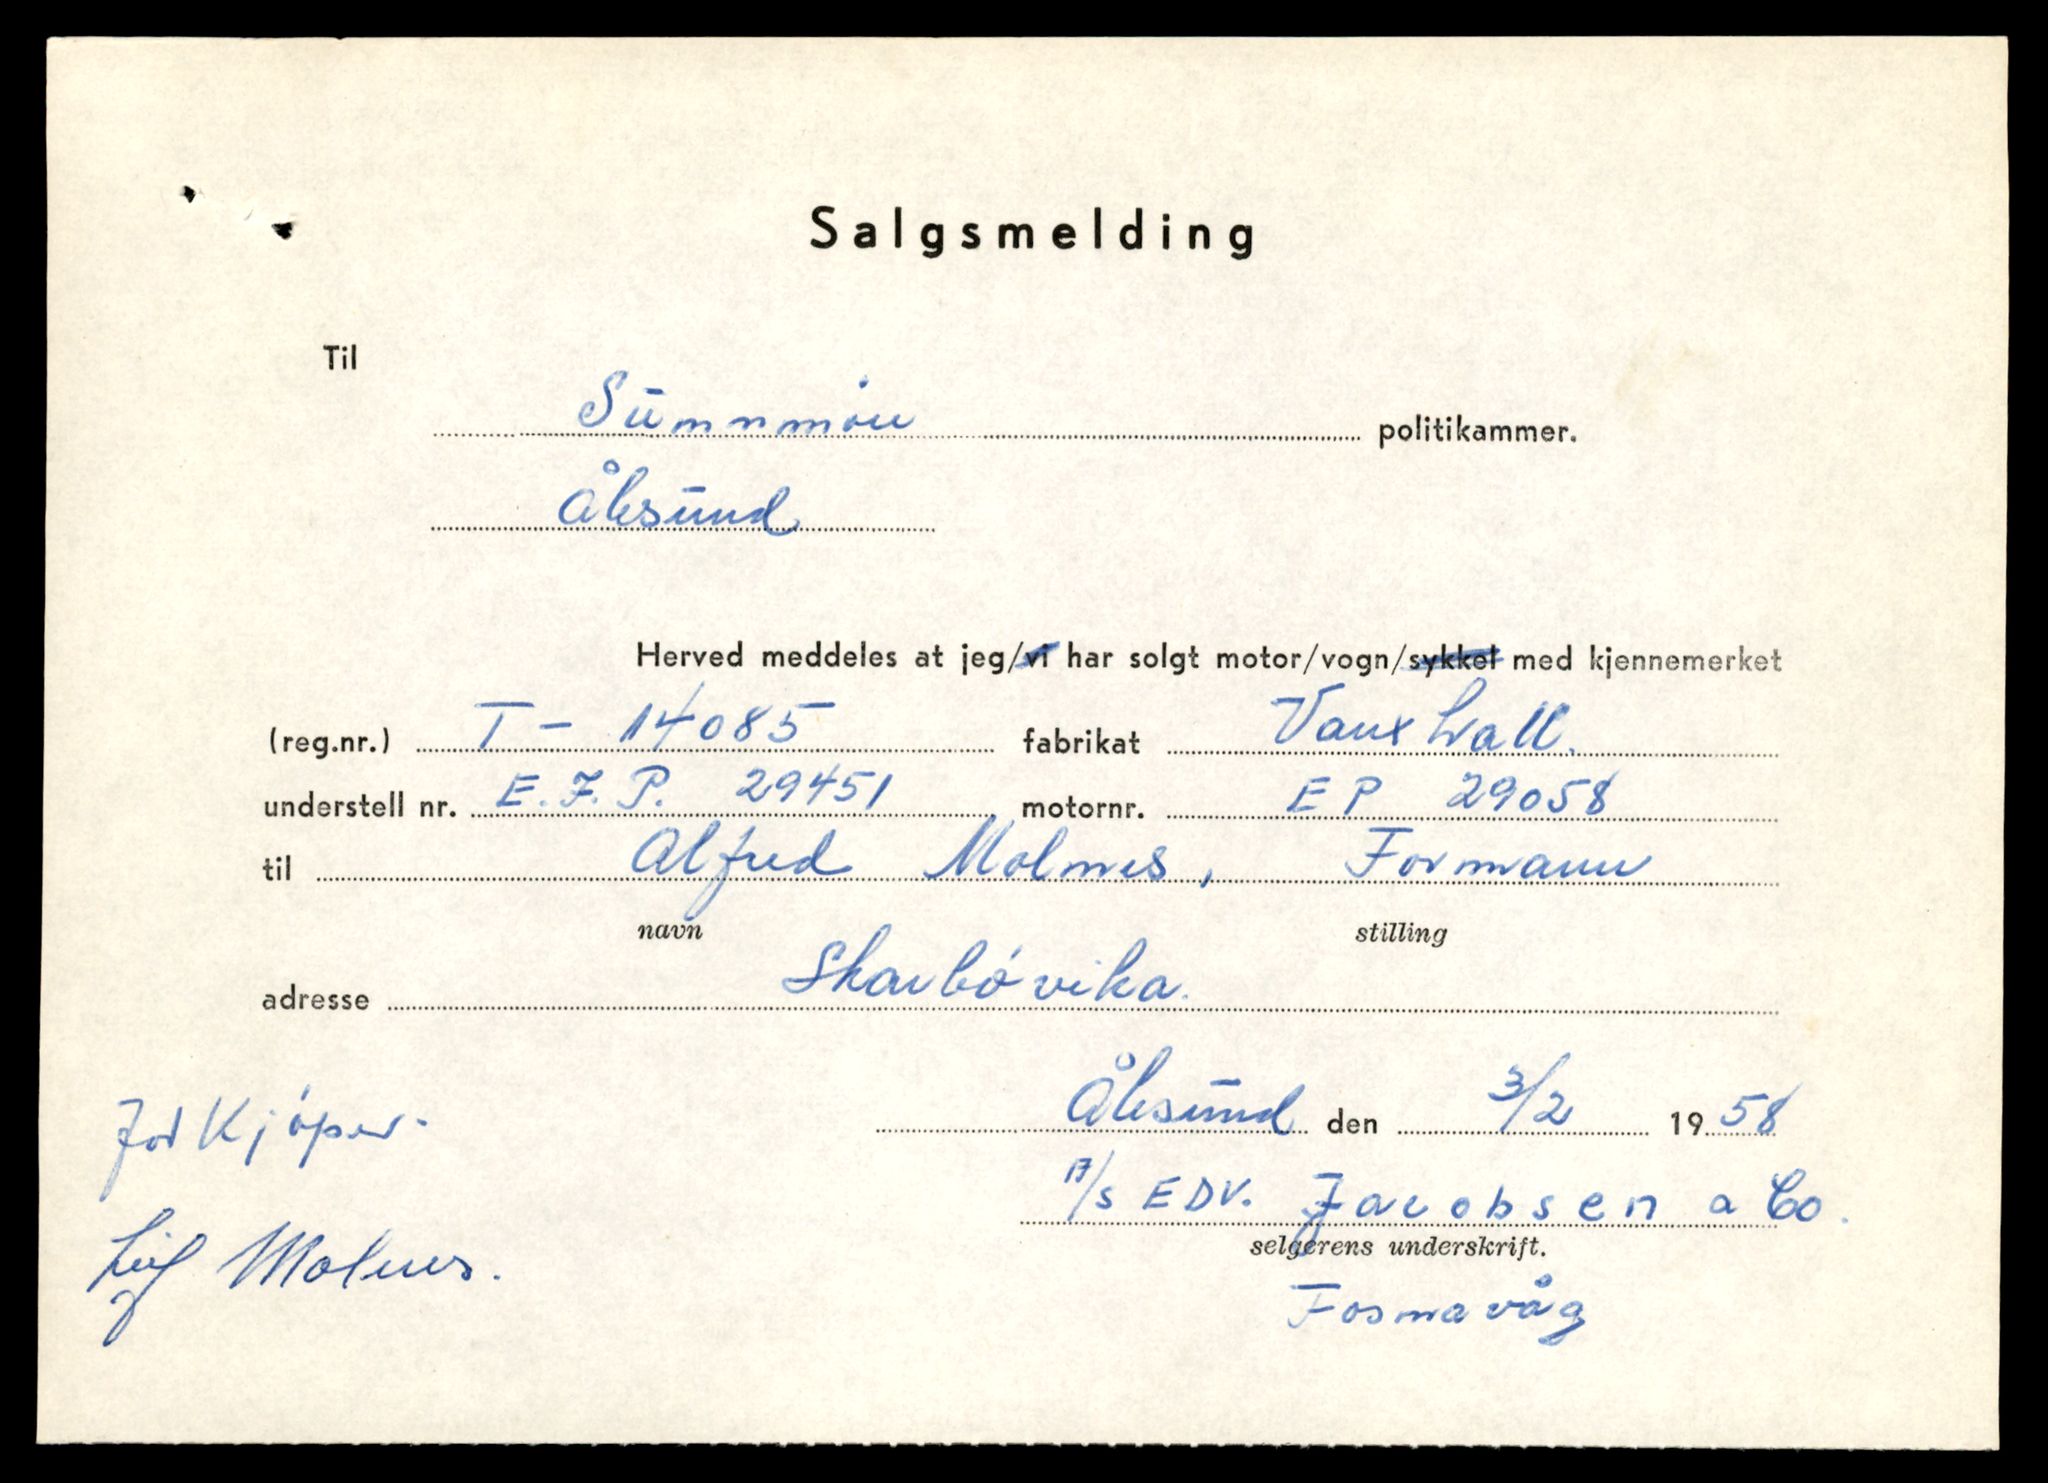 Salgsmelding
Til
Sunnmöre politikammer.
Ålesund
Herved meddeles at jeg/vi har solgt motor/vogn/sykkel med kjennemerket
(reg.nr.) T - 14085 fabrikat Vauxhall.
understell nr. E.F.P. 29451 motornr. EP 29058
til Alfred Molnes, Formann
navn stilling
adresse Skarbövika.
Ålesund den 3/2 1958
For Kjöper.
A/S EDV. Jacobsen a Co.
selgerens underskrift.
Leif Molnes.
Fosnavåg